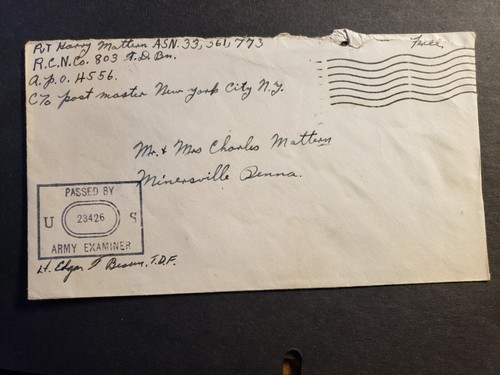 Pvt Harry Mattern ASN. 33,561,773
R.C.N.Co. 803 T.D Bn.
A.P.O. 4556.
C/o post master New York City N.Y.
Free.
Mr. & Mrs Charles Mattern
Minersville Penna.
PASSED BY
U 23426 S
ARMY EXAMINER
Lt. Edgar T. T.D.F.